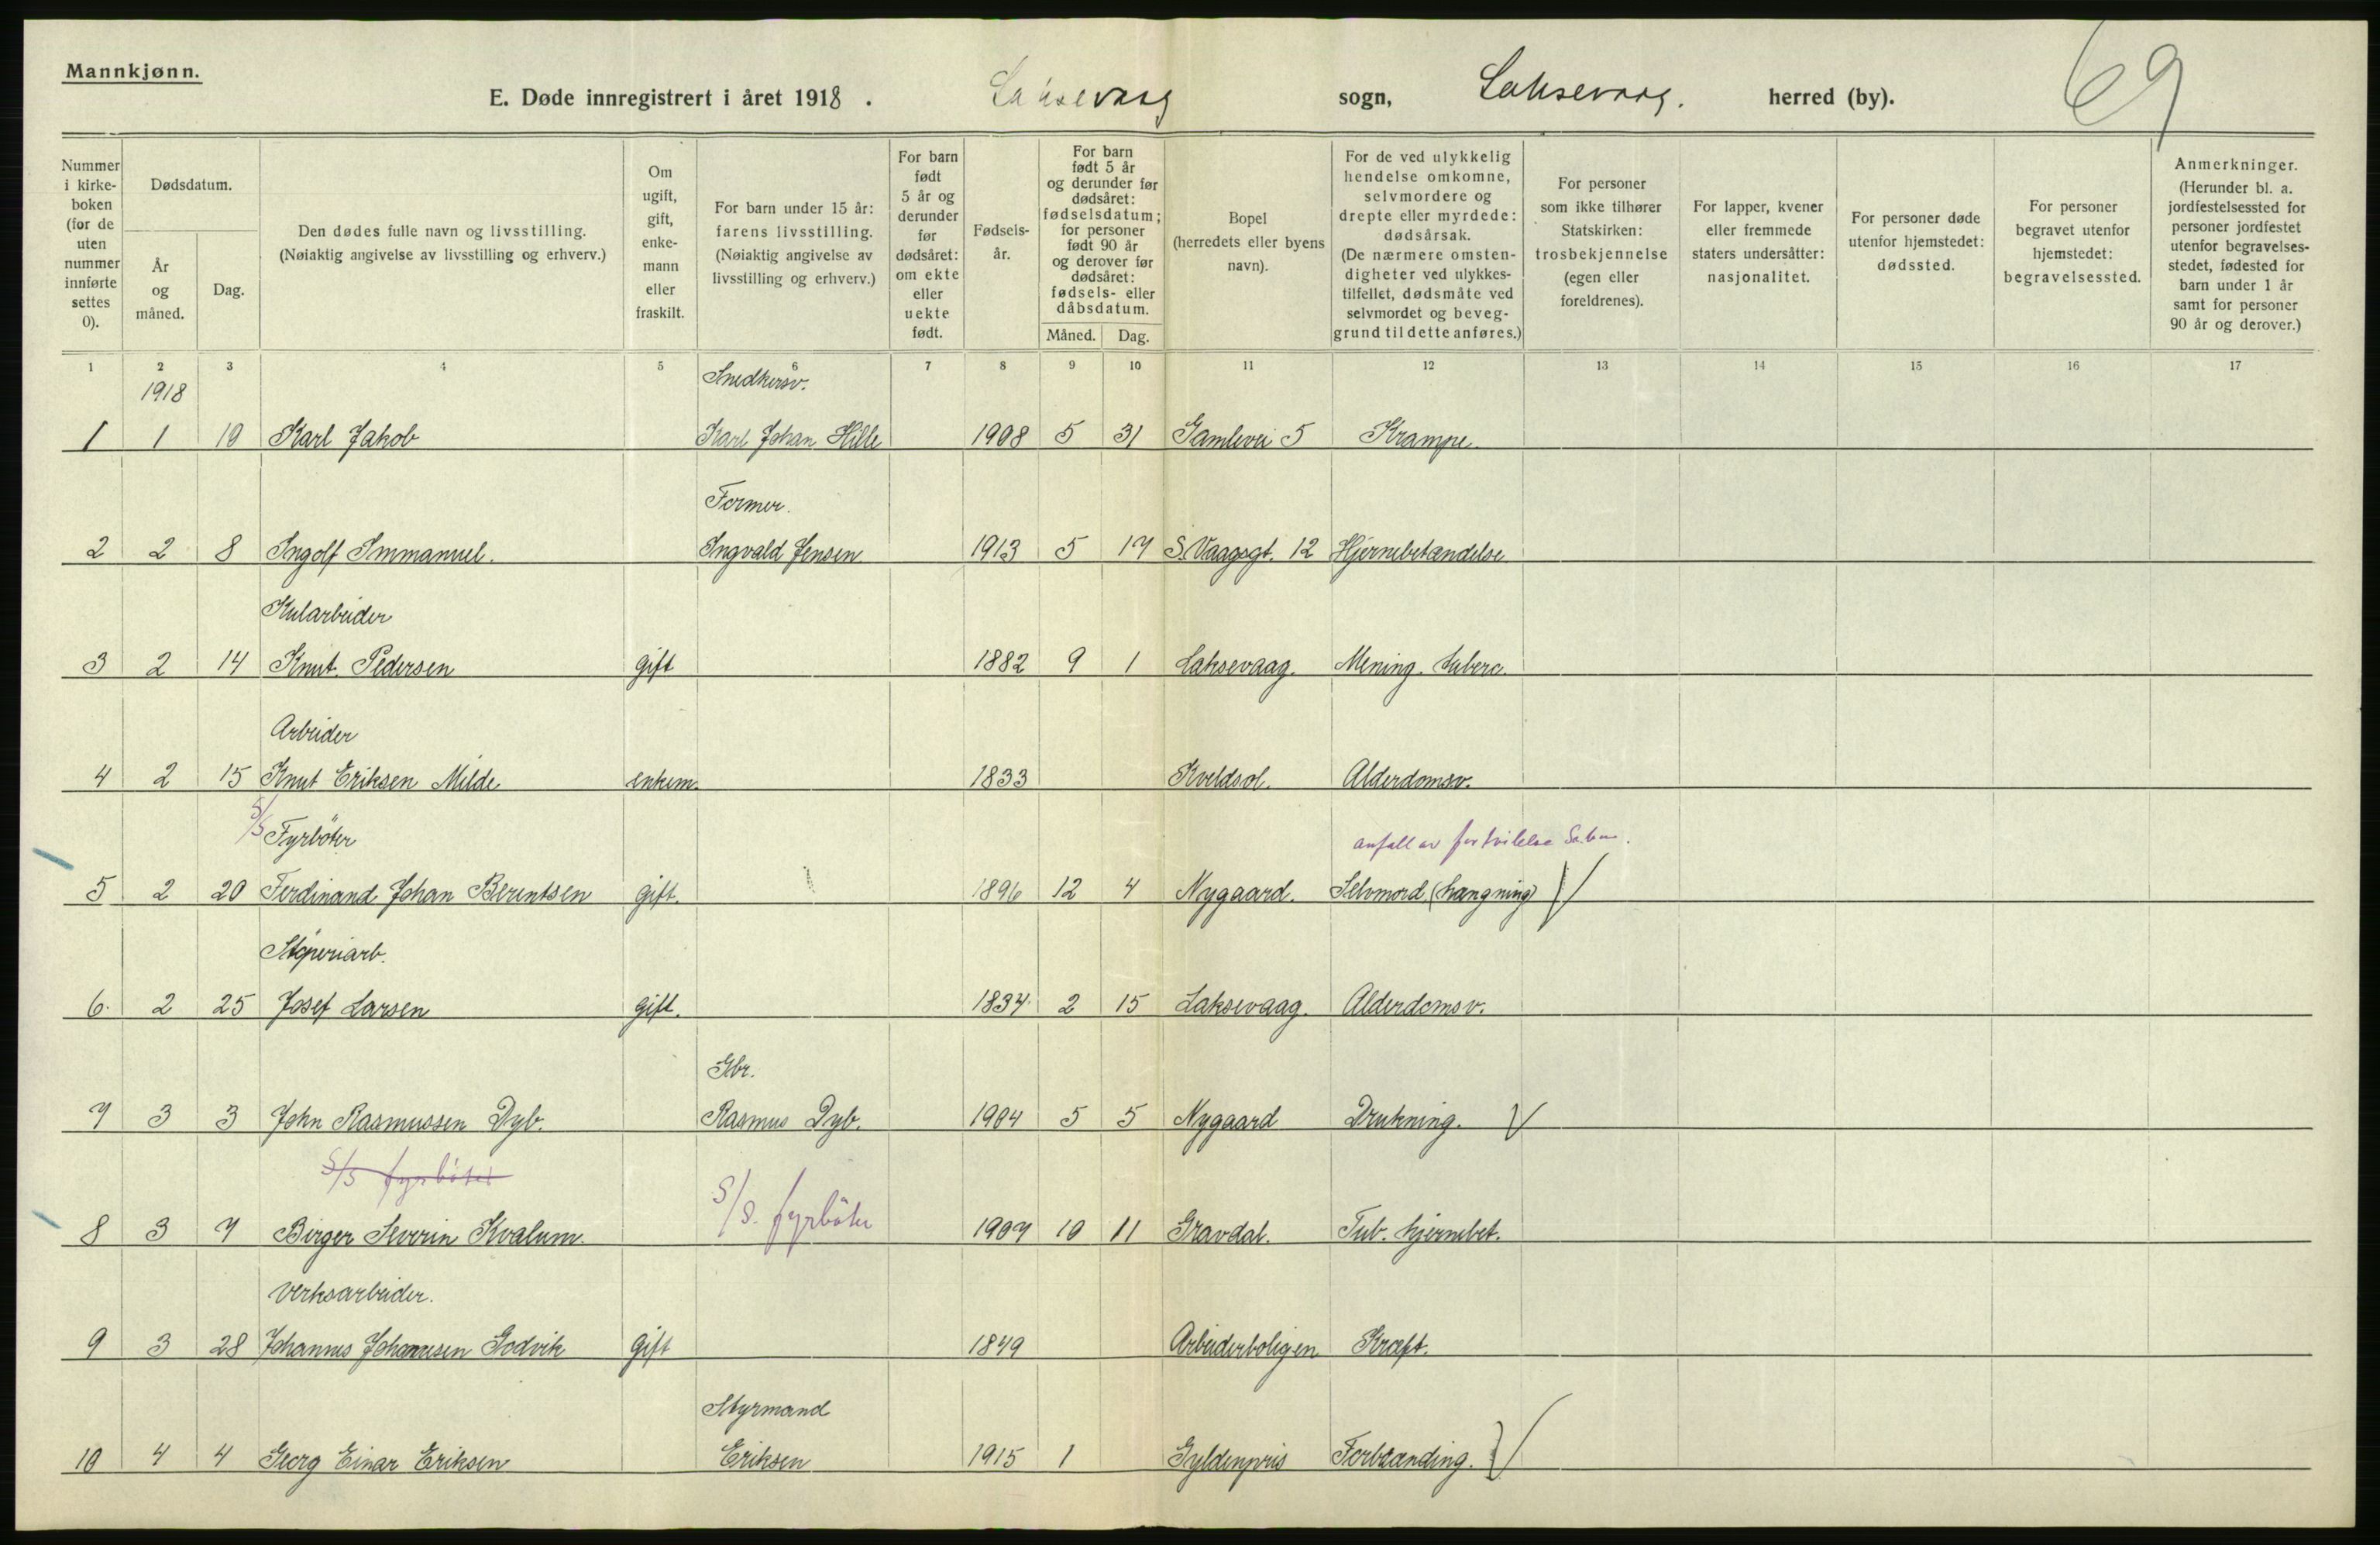 Mannkjønn.
E. Døde innregistrert i året 1918. Laksevaag sogn, Laksevaag. herred (by). 69
Nummer i kirkeboken (for de uten nummer innførte settes 0).
Dødsdatum.
År og måned.
Dag.
Den dødes fulle navn og livsstilling. (Nøiaktig angivelse av livsstilling og erhverv.)
Om ugift, gift, enkemann eller fraskilt.
For barn under 15 år: farens livsstilling. (Nøiaktig angivelse av livsstilling og erhverv.)
For barn født 5 år og derunder før dødsåret: om ekte eller uekte født.
Fødselsår.
For barn født 5 år og derunder før dødsåret: fødselsdatum; for personer født 90 år og derover før dødsåret: fødsels- eller dåbsdatum.
Måned. Dag.
Bopel (herredets eller byens navn).
For de ved ulykkelig hendelse omkomne, selvmordere og drepte eller myrdede: dødsårsak. (De nærmere omstendigheter ved ulykkestilfellet, dødsmåte ved selvmordet og beveggrund til dette anføres.)
For personer som ikke tilhører Statskirken: trosbekjennelse (egen eller foreldrenes).
For lapper, kvener eller fremmede staters undersåtter: nasjonalitet.
For personer døde utenfor hjemstedet: dødssted.
For personer begravet utenfor hjemstedet: begravelsessted.
Anmerkninger. (Herunder bl. a. jordfestelsessted for personer jordfestet utenfor begravelsesstedet, fødested for barn under 1 år samt for personer 90 år og derover.)
1 2 3 4 5 6 7 8 9 10 11 12 13 14 15 16 17
1918 Snedkersv.
1 1 19 Karl Jakob Karl Johan Hille 1908 5 31 Gamlevei 5 Krampe.
Former.
2 2 8 Ingolf Immanuel. Ingvald Jensen. 1913 5 17 S. Vaagsgt. 12 Hjernebetændelse
Kularbeider
3 2 14 Knut. Pedersen gift 1882 9 1 Laksevaag. Mening. tuberc.
Arbeider
4 2 15 Knut Eriksen Milde enkem. 1833 Kveldsol. Alderdomsv.
S/S Fyrböter anfall av fortvilelse
5 2 20 Ferdinand Johan Berentsen gift. 1896 12 4 Nygaard. Selvmord (hængning)
Støperiarb.
6. 2 25 Josef Larsen gift. 1834. 2 15 Laksevaag. Alderdomsv.
Gbr.
7 3 3 John Rasmussen Dyb. Rasmus Dyb. 1904 5 5 Nygaard Drukning. V
S/S fyrböter S/S. fyrböter
8 3 7 Birger Severin Kvalum. 1907 10 11 Gravdal. Tub. hjernebet.
Verksarbeider.
9 3 28 Johannes Johannesen Godvik Gift 1849 Arbeiderboligen Kræft.
Styrmand
10 4 4 Georg Einar Eriksen Eriksen 1915 1 Gyldenpris Forbrænding. V